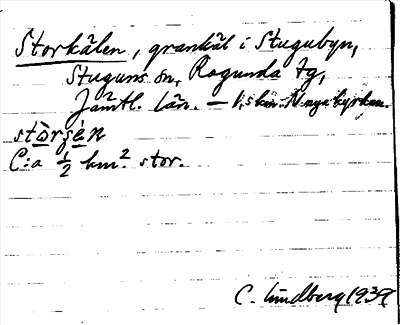 Storkälen, grankäl i Stugubyn,
Stuguns sn, Ragunda tg,
Jämtl. län. – V. skin. N. nya kyrkan.
stòrʂèn
C:a ½ km². stor.
C. Lindberg 1939